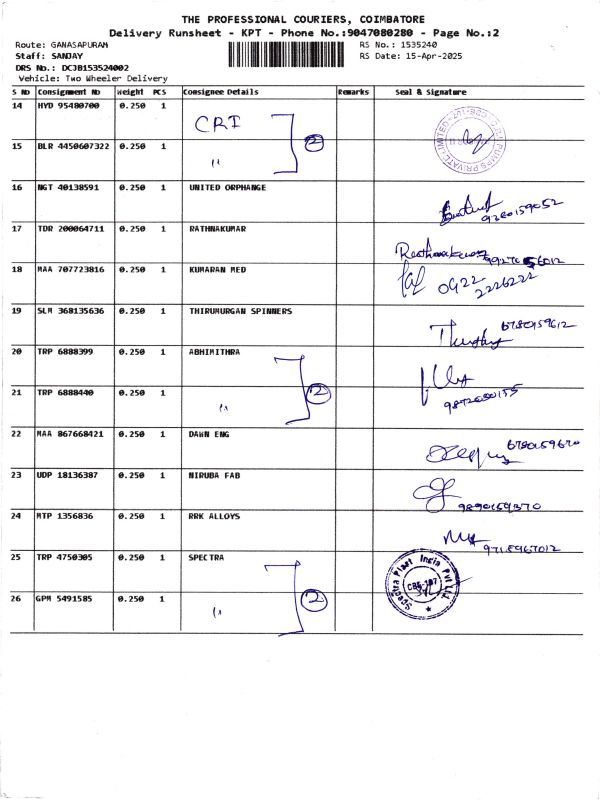 THE PROFESSIONAL COURIERS, COIMBATORE
Delivery Runsheet - KPT - Phone No.:9047080280 - Page No.:2
Route: GANASAPURAM RS No.: 1535240
Staff: SANJAY RS Date: 15-Apr-2025
DRS No.: DCJB153524002
Vehicle: Two Wheeler Delivery
S No Consignment No Weight PCS Consignee Details Remarks Seal & Signature
14 HYD 95480700 0.250 1 CRI
2
15 BLR 4450607322 0.250 1 "
16 NGT 40138591 0.250 1 UNITED ORPHANGE
9260159052
17 TDR 200064711 0.250 1 RATHNAKUMAR
Rathnakumar
18 MAA 707723816 0.250 1 KUMARAN MED
0422
2226222
19 SLM 368135636 0.250 1 THIRUMURGAN SPINNERS 6780159612
20 TRP 6888399 0.250 1 ABHIMITHRA
21 TRP 6888440 0.250 1 " 2
22 MAA 867668421 0.250 1 DAWN ENG 6780159670
23 UDP 18136387 0.250 1 NIRUBA FAB
9890159370
24 MTP 1356836 0.250 1 RRK ALLOYS
9715967012
25 TRP 4750305 0.250 1 SPECTRA
Spectra Plast India Pvt Ltd.
CBE-107
26 GPM 5491585 0.250 1 " 2